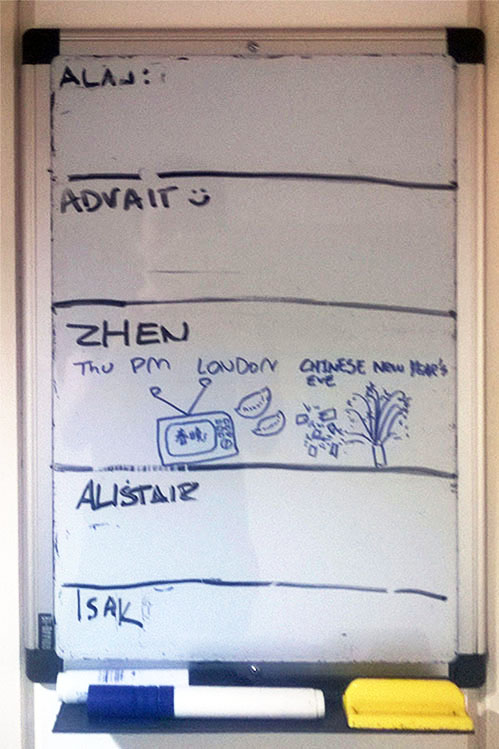 ALAN:
ADVAIT
ZHEN
THU PM LONDON CHINESE NEW YEAR'S
EVE
春晚
ALISTAIR
ISAK